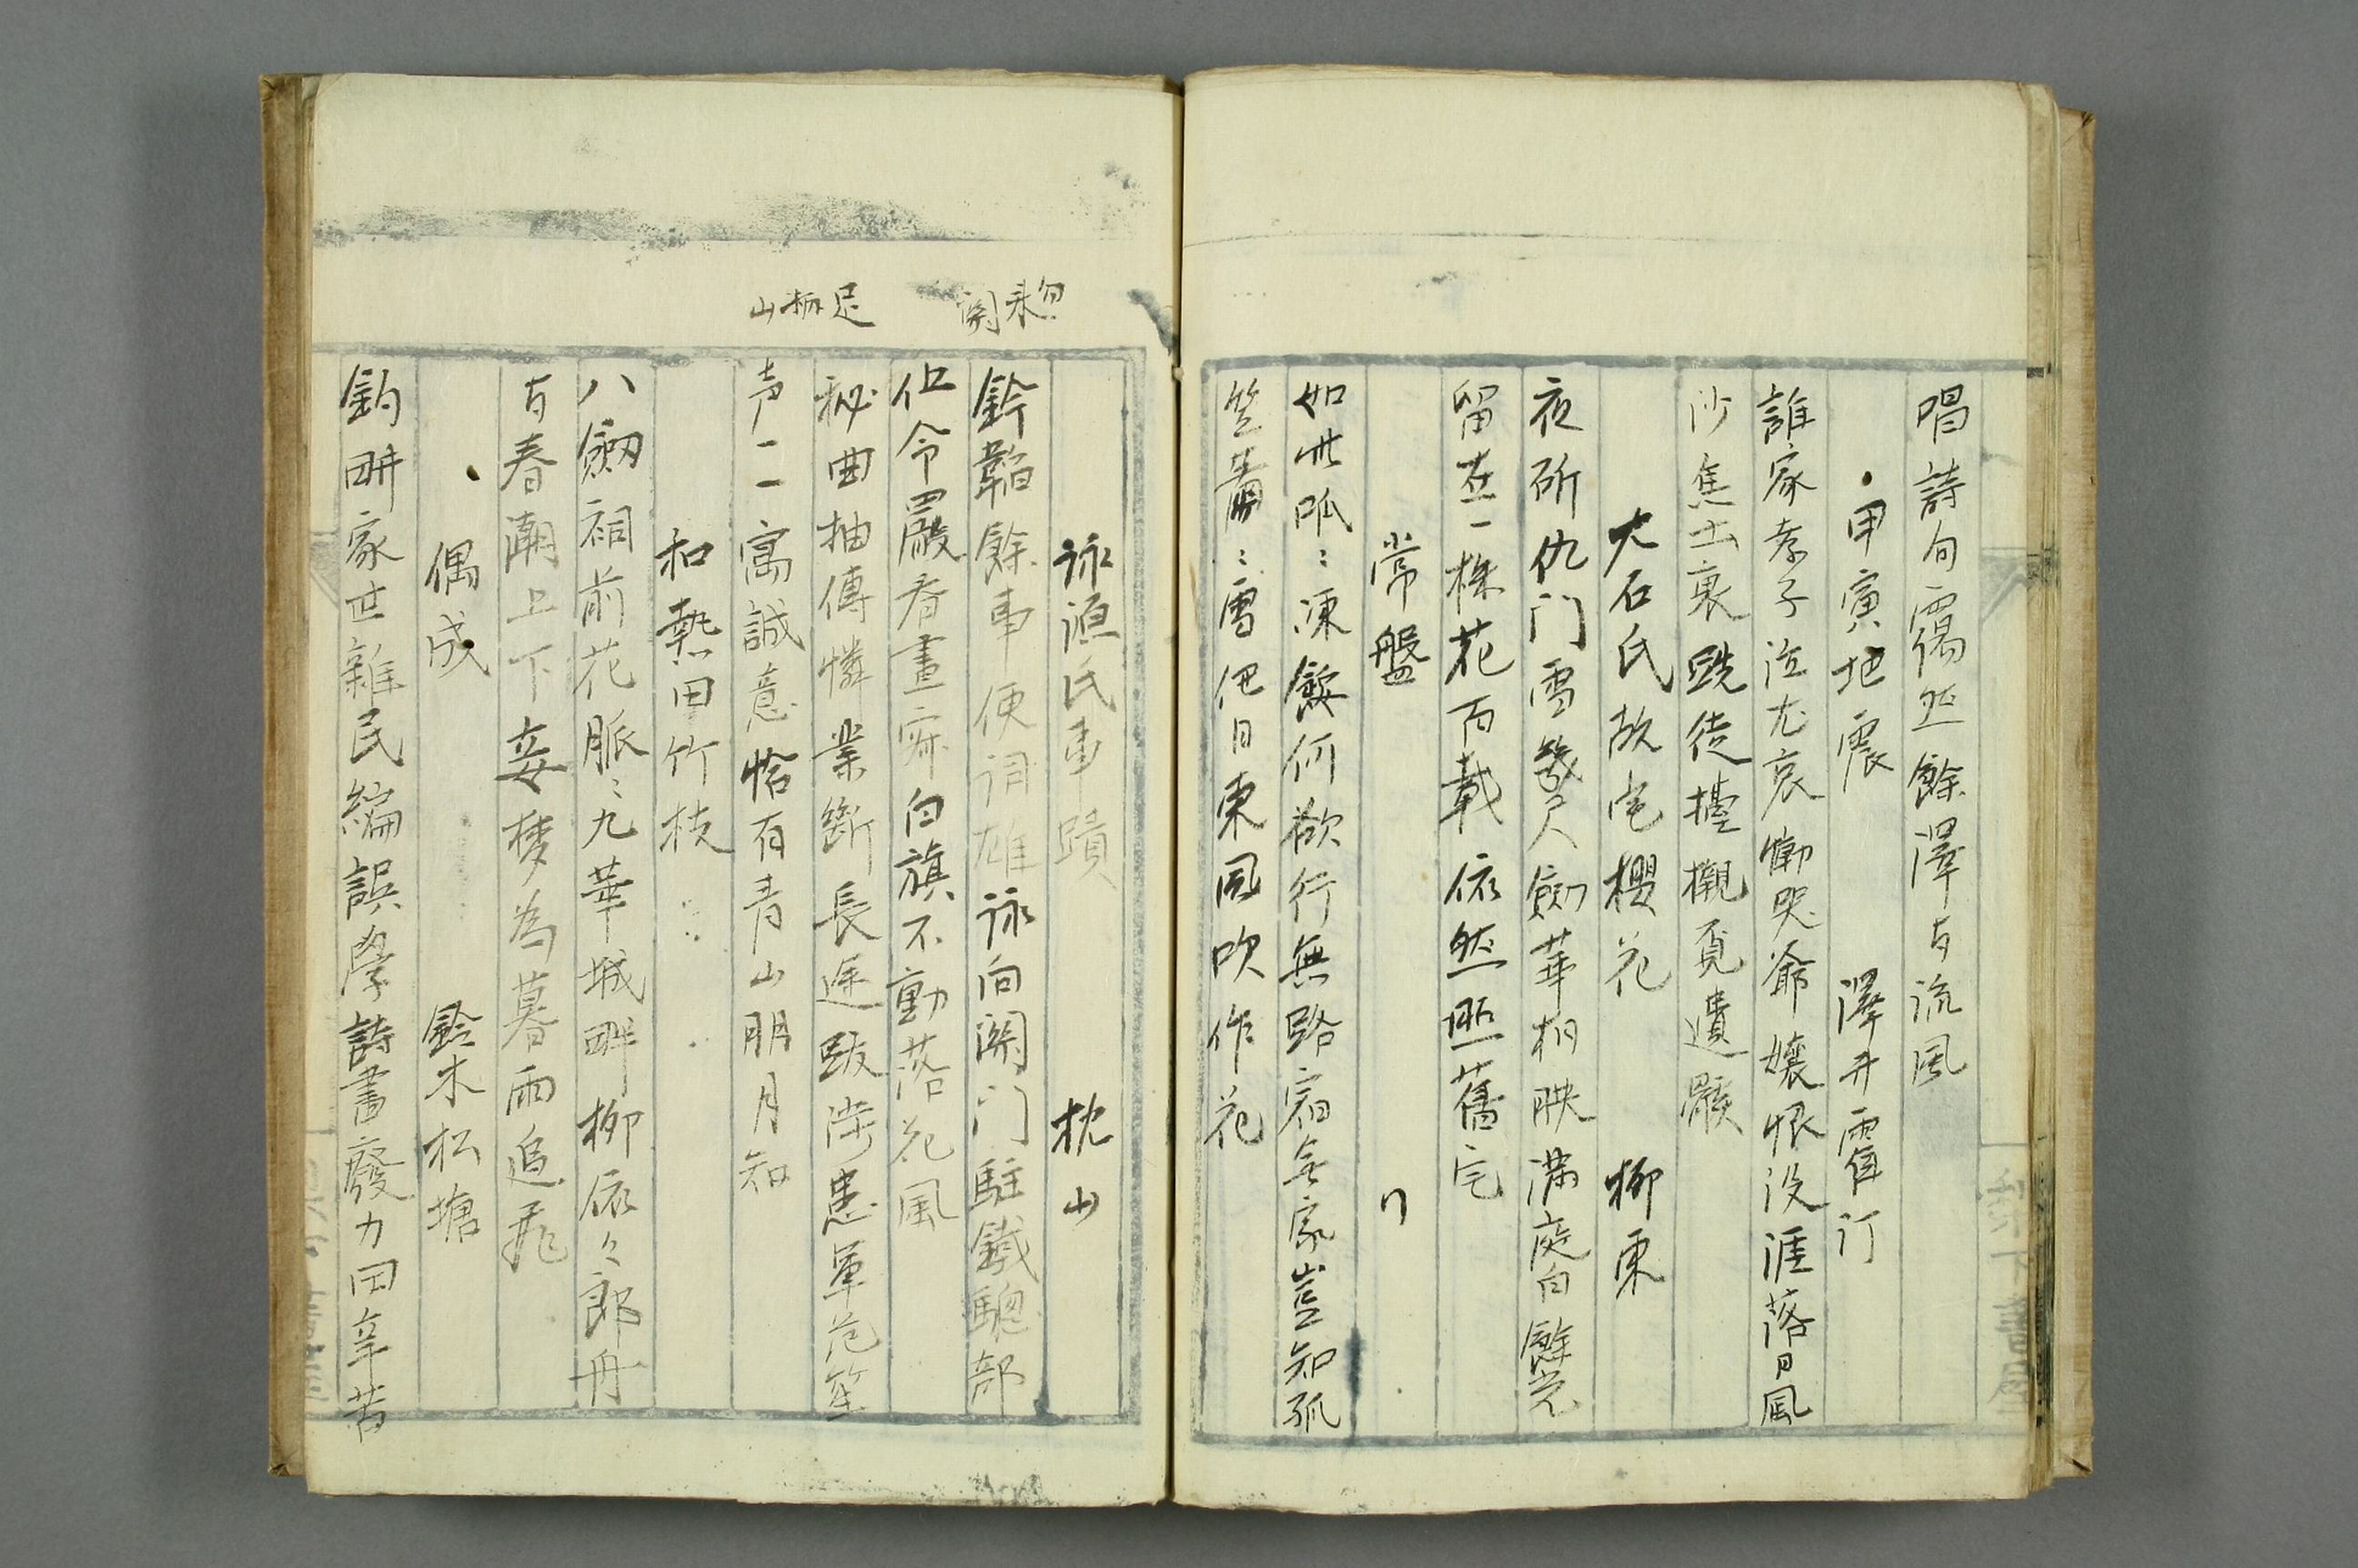 唱詩句靄然餘澤与流風
甲寅地震 澤井霍汀
誰家孝子泣尤哀慟哭爺孃恨没涯落日風
沙焦土裏跣徒擡櫬覓遺骸
大石氏故宅櫻花 柳東
夜斫仇门雪幾尺劍華相映満庭白餘光
留在一株花百載依然照舊宅
常盤 〃
如此呱〻凍餒何欲行無路宿無家豈知孤
笠蕭〻雪他日東風吹作花
詠源氏事蹟 枕山
鈐韜餘事便詞雄詠向関门駐鐵驄部
伍令嚴春晝寂白旗不動落花風
秘曲抽傳憐業斷長途跋渉患軍
声二一寓誠意恰有青山明月知
和熱田竹枝
八劔祠前花脈〻九華城畔柳依々郎舟
与春潮上下妾梦為暮雨追飛
偶成 鈴木松塘
釣畊家世雜民編誤學詩書廢力田辛苦
勿来関
足柄山